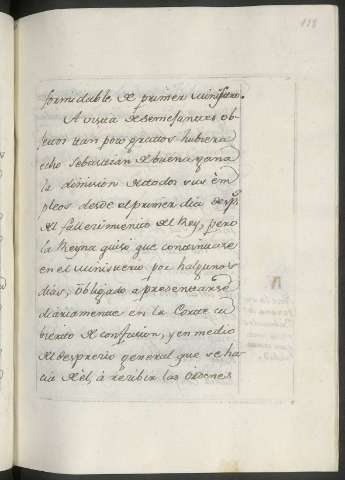 118
formidable de primer ministro.
A vista de semejantes ob-
jetos tan poco gratos hubiera
echo Sebastian de buena gana
la dimision de todos sus em
pleos desde el primer dia desp.^s
del fallecimiento del Rey, pero
la Reyna quiso que continuase
en el ministerio por halgunos
dias; Obligado a presentarse
diariamente en la Corte cu
bierto de confusion, y en medio
del desprecio general que se ha-
cia del, à recibir las ordenes